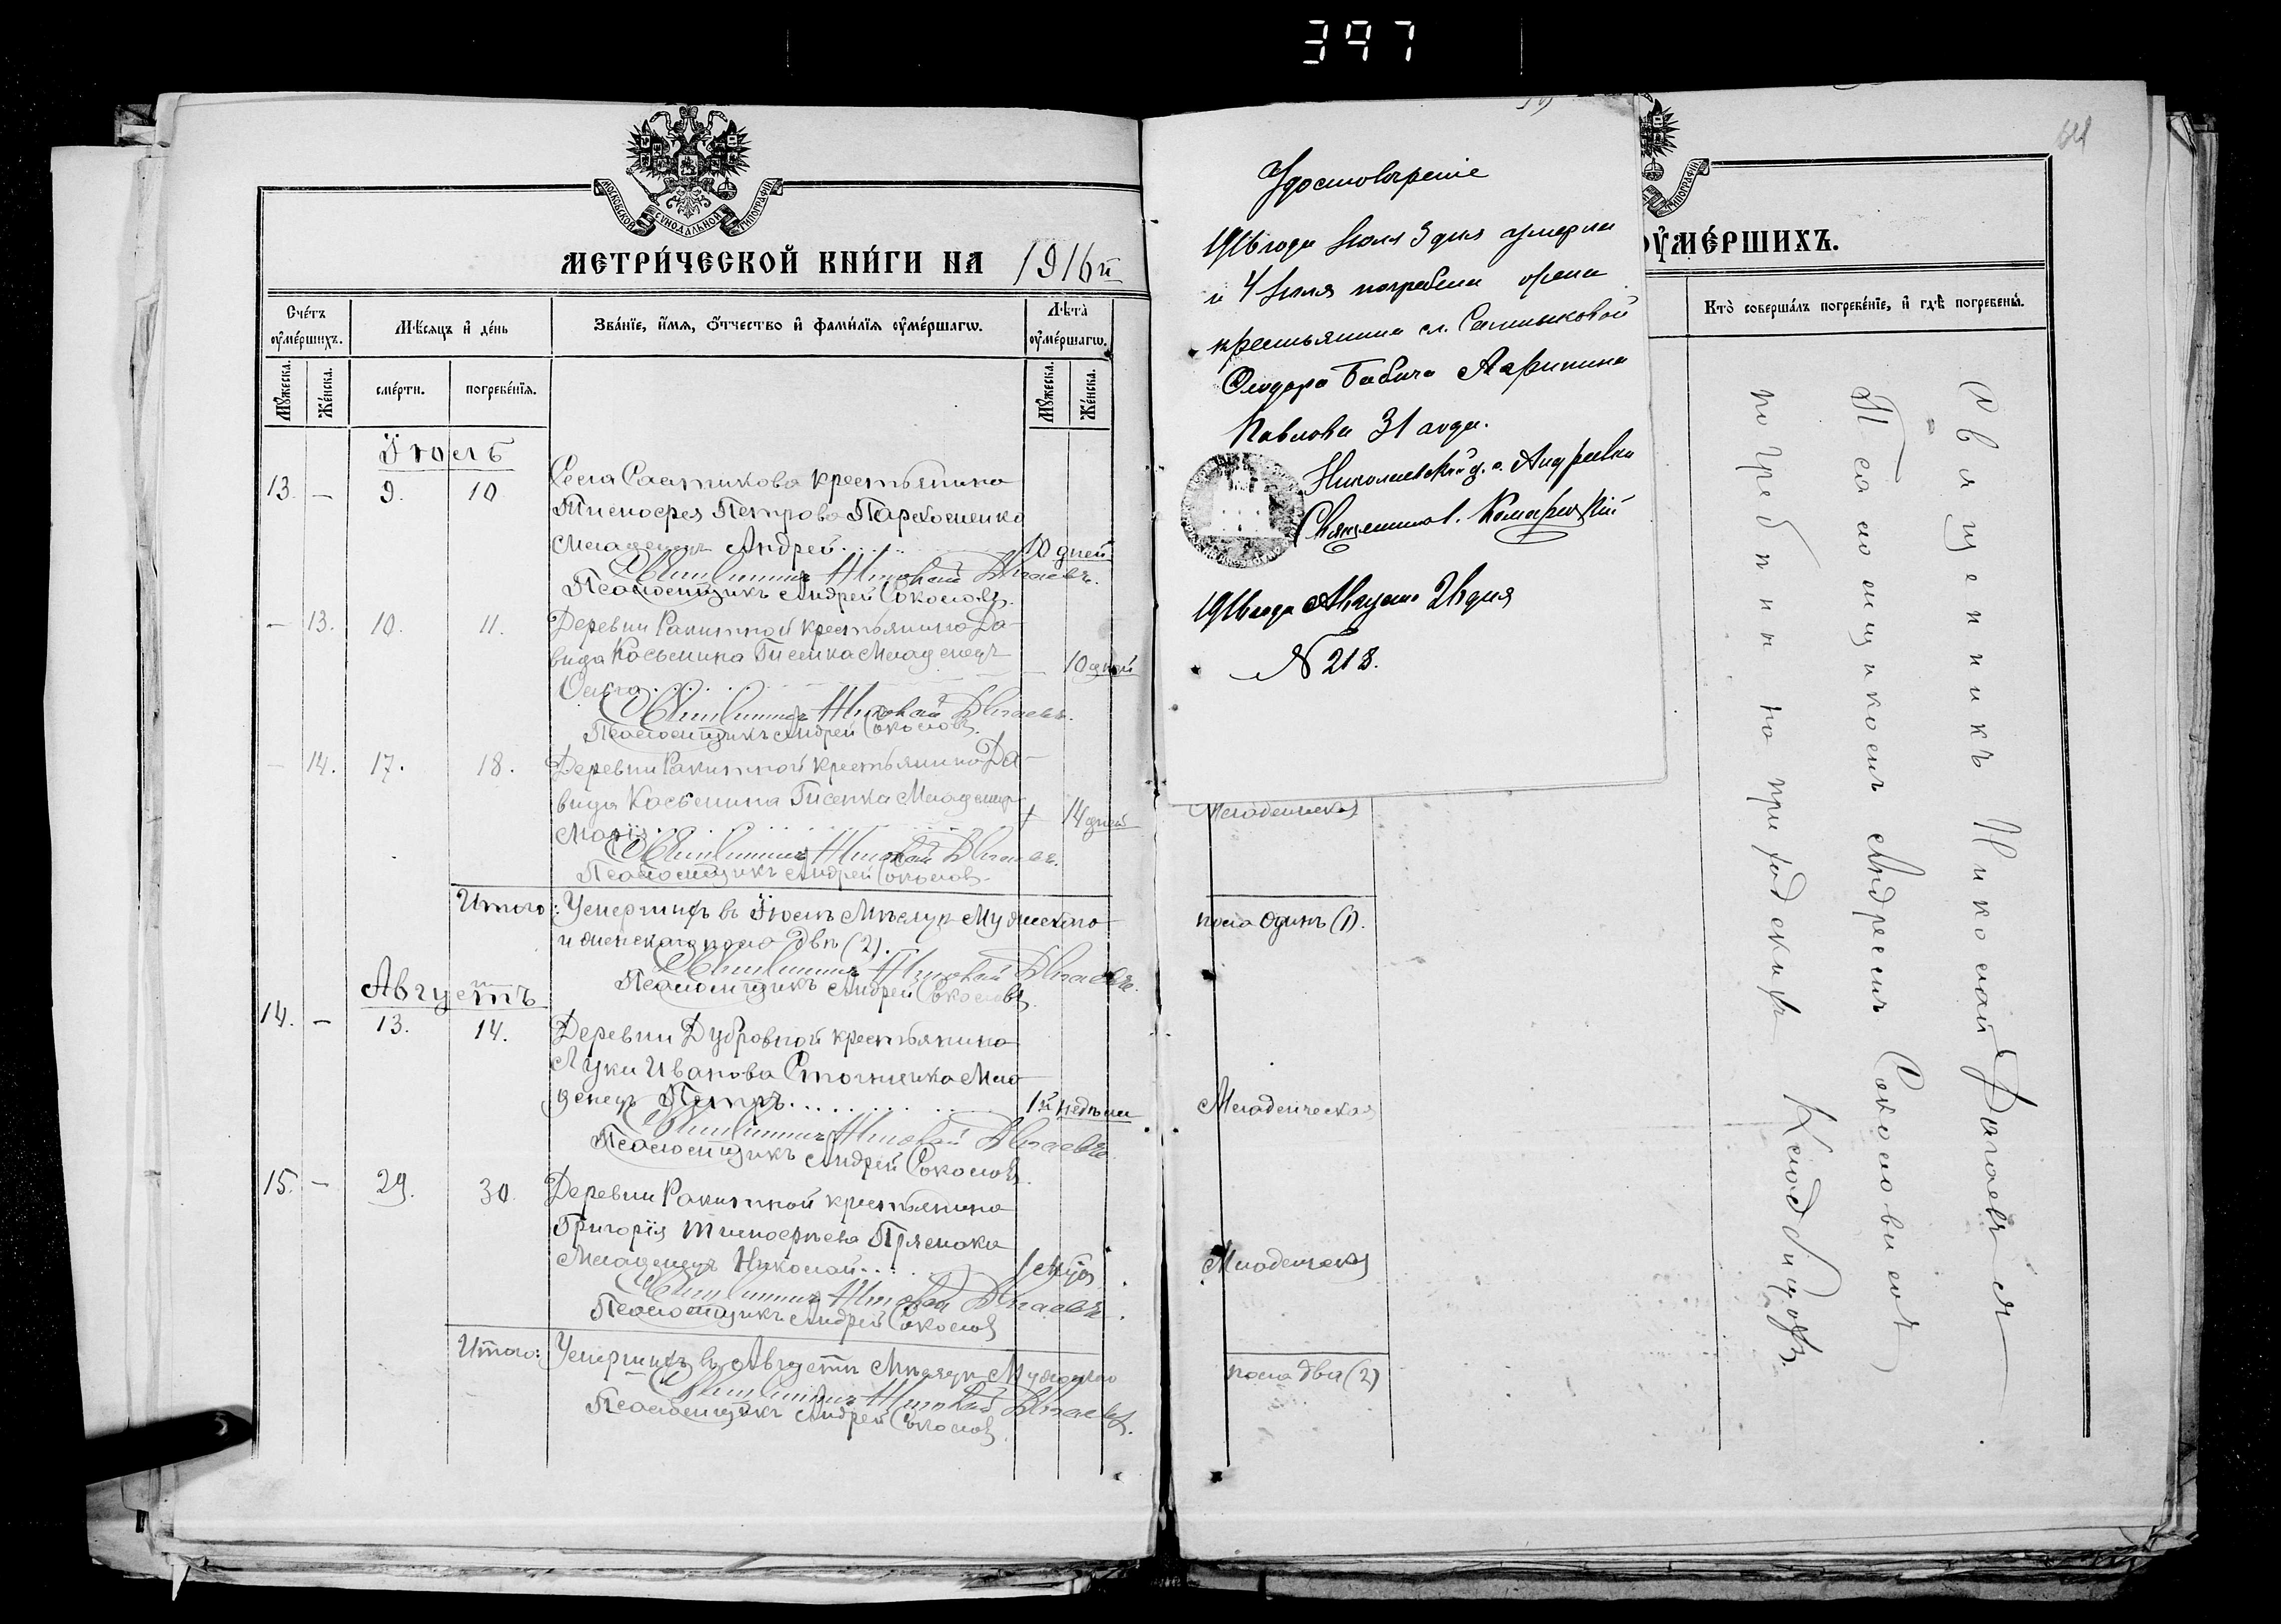 397
МОСКОВСКОЙ СѴНОДАЛЬНОЙ ТИПОГРАФІИ
МЕТРИ́ЧЕСКОЙ КНИ́ГИ НА 1916й
Сче́тъ ᲂу҆ме́ршихъ.
Мѣ́сяцъ и҆ де́нь
Зва́нїе, и҆́мѧ, ѻ҆́тчество и҆ фами́лїѧ ᲂу҆ме́ршагѡ.
Лѣ́та ᲂу҆ме́ршагѡ.
Мꙋ́жеска.
Же́нска.
сме́рти.
погребе́нїѧ.
Мꙋ́жеска.
Же́нска.
Іюль
13. – 9. 10
Села Састикова крестьянина
Тимофея Петрова Пархоменко
Младенецъ Андрей 10 дней
Священникъ Николай
Псаломщикъ Андрей Соколовъ.
– 13. 10. 11.
Деревни Ракитной крестьянина Да-
вида Косьмина Младенецъ
Ольга 10 дней
Священникъ Николай
Псаломщикъ Андрей Соколовъ.
– 14. 17. 18.
Деревни Ракитной крестьянина Да-
вида Косьмина Младенецъ
Марія 14 дней
Священникъ Николай
Псаломщикъ Андрей Соколовъ.
Итого: Умершихъ въ Іюлѣ Мѣсяцѣ Мужескаго
и женскаго пола двѣ (2).
Священникъ Николай
Псаломщикъ Андрей Соколовъ.
Августъ
14. – 13. 14.
Деревни Дубровной крестьянина
Луки Иванова Мла-
денецъ Петръ 1й недѣли
Священникъ Николай
Псаломщикъ Андрей Соколовъ.
15. – 29. 30.
Деревни Ракитной крестьянина
Григорія Тимофеева
Младенецъ Николай 1 мѣс.
Священникъ Николай
Псаломщикъ Андрей Соколовъ
Итого: Умершихъ въ Августѣ Мѣсяцѣ Мужескаго
Священникъ Николай
Псаломщикъ Андрей Соколовъ.
Удостовѣреніе
1916 года Іюля 3 дня умерла
и 4 Іюля погребена жена
крестьянина сл.
Ѳеодора Бабича Агрипина
Павлова 31 года.
Николаевской ц. с. Андреевки
Священникъ І.
1916 года Августа 26 дня
N 218.
ТИПОГРАФІИ
ᲂУ҆МЕ́РШИХЪ.
Кто̀ соверша́лъ погребе́нїе, и҆ гдѣ̀ погребены̀.
Младенческая
пола одинъ (1).
Младенческая
Младенческая
пола два (2)
Священникъ Николай
Псаломщикомъ Андреемъ Соколовымъ
погребали на приходскихъ кладбищахъ.